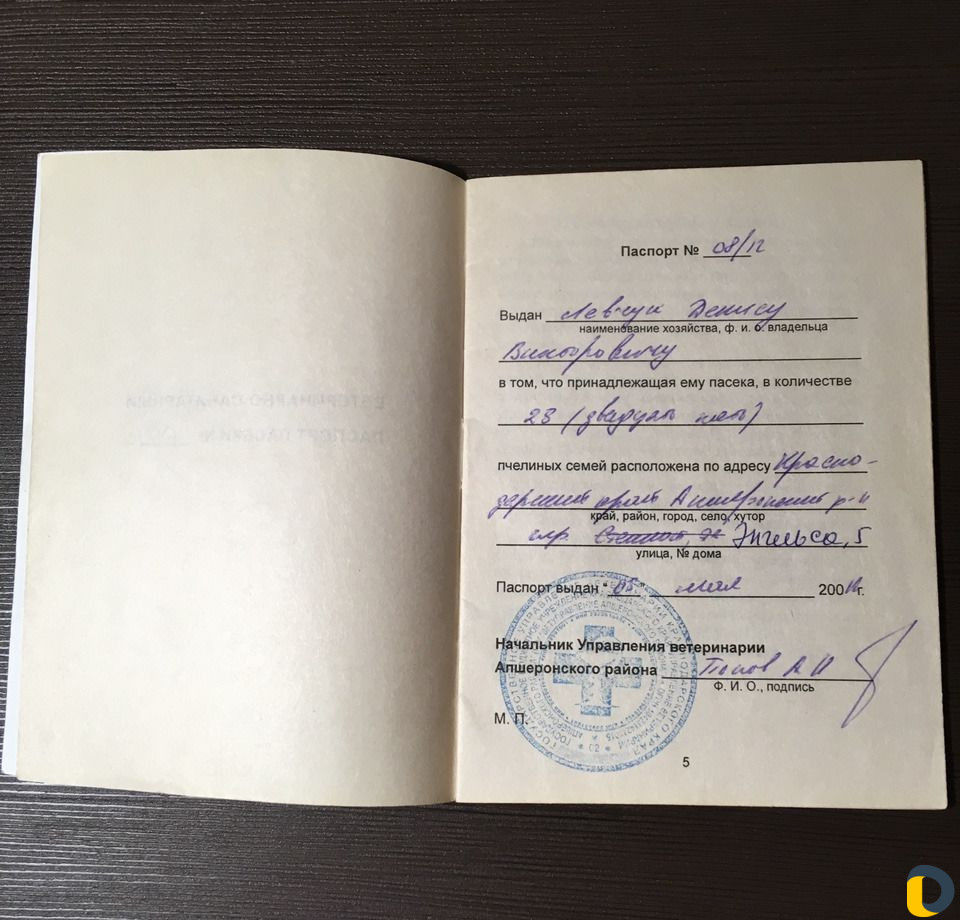 Паспорт № 08/12
Выдан Левчук Денису
наименование хозяйства, ф. и. о. владельца
Викторовичу
в том, что принадлежащая ему пасека, в количестве
23 (двадцать три)
пчелиных семей расположена по адресу Красно-
дарский край Апшеронский р-н
край, район, город, село, хутор
Энгельса, 5
улица, № дома
Паспорт выдан " 05 " мая 200 г.
Начальник Управления ветеринарии
Апшеронского района Попов А И
Ф. И. О., подпись
М. П.
5